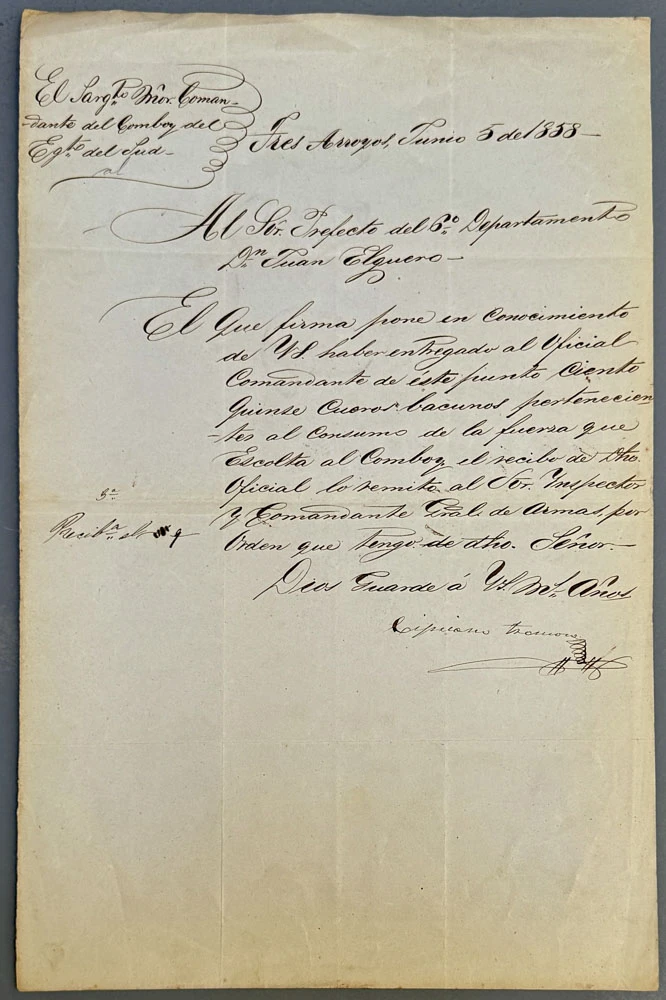 El Sargto Mor. Coman-
-dante del Comboy del
Egto del Sud-
Tres Arroyos, Junio 5 de 1858-
Al Sor. Prefecto del 6o Departamento
Dn Juan Elguero-
El Que firma pone en Conocimiento
de VS haber entregado al Oficial
Comandante de éste punto Ciento
Quinse Cueros bacunos pertenecien
-tes al consumo de la fuerza que
Escolta al Comboy, el recibo de dho.
Oficial lo remito al Sor. Inspector
y Comandante Gral. de Armas, por
Orden que tengo de dho. Señor.-
Dios Guarde á VS. Ms. Años
Cipriano